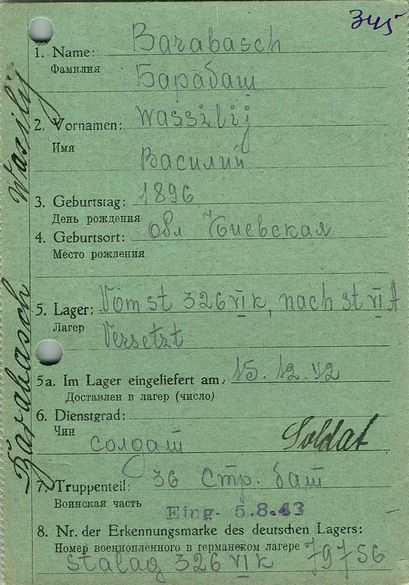 345
1. Name: Barabasch
Фамилия Барабаш
2. Vornamen: Wassilij
Имя Василий
3. Geburtstag: 1896
День рождения
4. Geburtsort: Обл Киевская
Место рождения
5. Lager: Vom st 326 VI K, nach st VI A
Лагерь Versetzt
5a. Im Lager eingeliefert am, 15.12.42
Доставлен в лагер (число)
6. Dienstgrad:
Чин солдат Soldat
7. Truppenteil: 36 Стр. бат
Воинская часть
Eing. 6.8.43
8. Nr. der Erkennungsmarke des deutschen Lagers:
Номер военнопленного в германском лагере 79756
stalag 326 VI K
Barabasch Wassilij